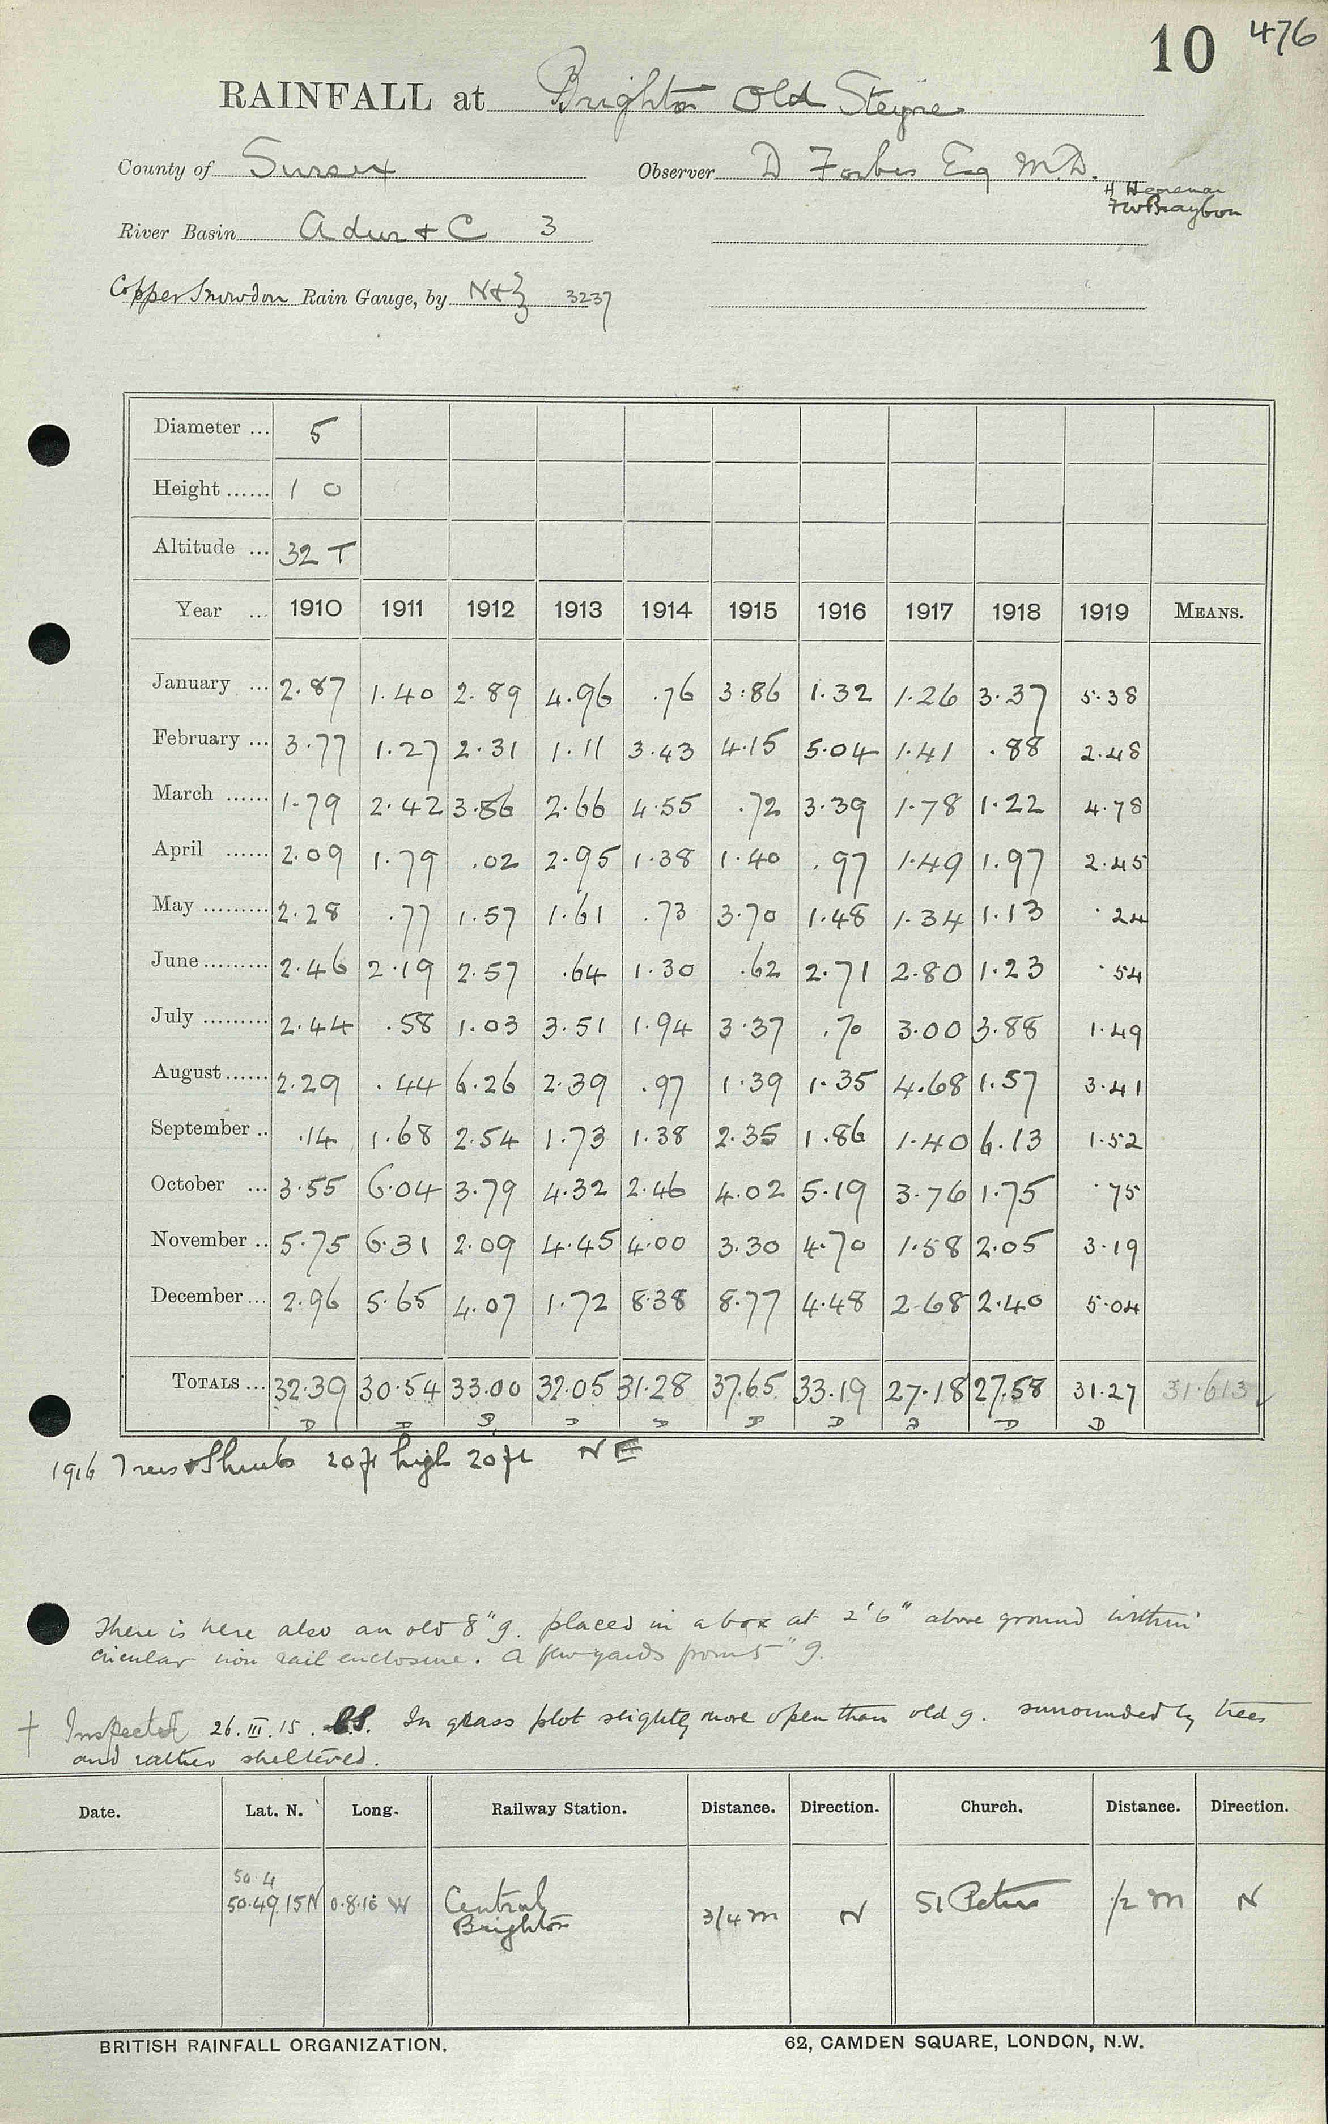 10 476
RAINFALL at Brighton Old Steyne
County of Sussex Observer D Forbes Esq M.D.
FWBraybon
River Basin Adur & C 3
Copper Snowdon Rain Gauge, by N&Z 3237
Diameter ... 5
Height ...... 1 0
Altitude ... 32 T
Year ... 1910 1911 1912 1913 1914 1915 1916 1917 1918 1919 MEANS.
January ... 2.87 1.40 2.89 4.96 .76 3.86 1.32 1.26 3.37 5.38
February ... 3.77 1.27 2.31 1.11 3.43 4.15 5.04 1.41 .88 2.48
March ...... 1.79 2.42 3.86 2.66 4.55 .72 3.39 1.78 1.22 4.78
April ...... 2.09 1.79 .02 2.95 1.38 1.40 .97 1.49 1.97 2.45
May ......... 2.28 .77 1.57 1.61 .73 3.70 1.48 1.34 1.13 .24
June ......... 2.46 2.19 2.57 .64 1.30 .62 2.71 2.80 1.23 .54
July ......... 2.44 .58 1.03 3.51 1.94 3.37 .70 3.00 3.88 1.49
August ...... 2.29 .44 6.26 2.39 .97 1.39 1.35 4.68 1.57 3.41
September .. .14 1.68 2.54 1.73 1.38 2.35 1.86 1.40 6.13 1.52
October ... 3.55 6.04 3.79 4.32 2.46 4.02 5.19 3.76 1.75 .75
November .. 5.75 6.31 2.09 4.45 4.00 3.30 4.70 1.58 2.05 3.19
December ... 2.96 5.65 4.07 1.72 8.38 8.77 4.48 2.68 2.40 5.04
TOTALS ... 32.39 30.54 33.00 32.05 31.28 37.65 33.19 27.18 27.58 31.27 31.613
D D D D D D D D D D
1916 Trees & Shrubs 20 ft high 20 ft NE
There is here also an old 8" g. placed in a box at 2'6" above ground within
circular iron rail enclosure. A few yards from 5" g.
† Inspected 26.III.15. In grass plot slightly more open than old g. surrounded by trees
and rather sheltered.
Date. Lat. N. Long. Railway Station. Distance. Direction. Church. Distance. Direction.
50 4
50.49.15N 0.8.16 W Central Brighton 3/4 m N St Peters 1/2 m N
BRITISH RAINFALL ORGANIZATION. 62, CAMDEN SQUARE, LONDON, N.W.